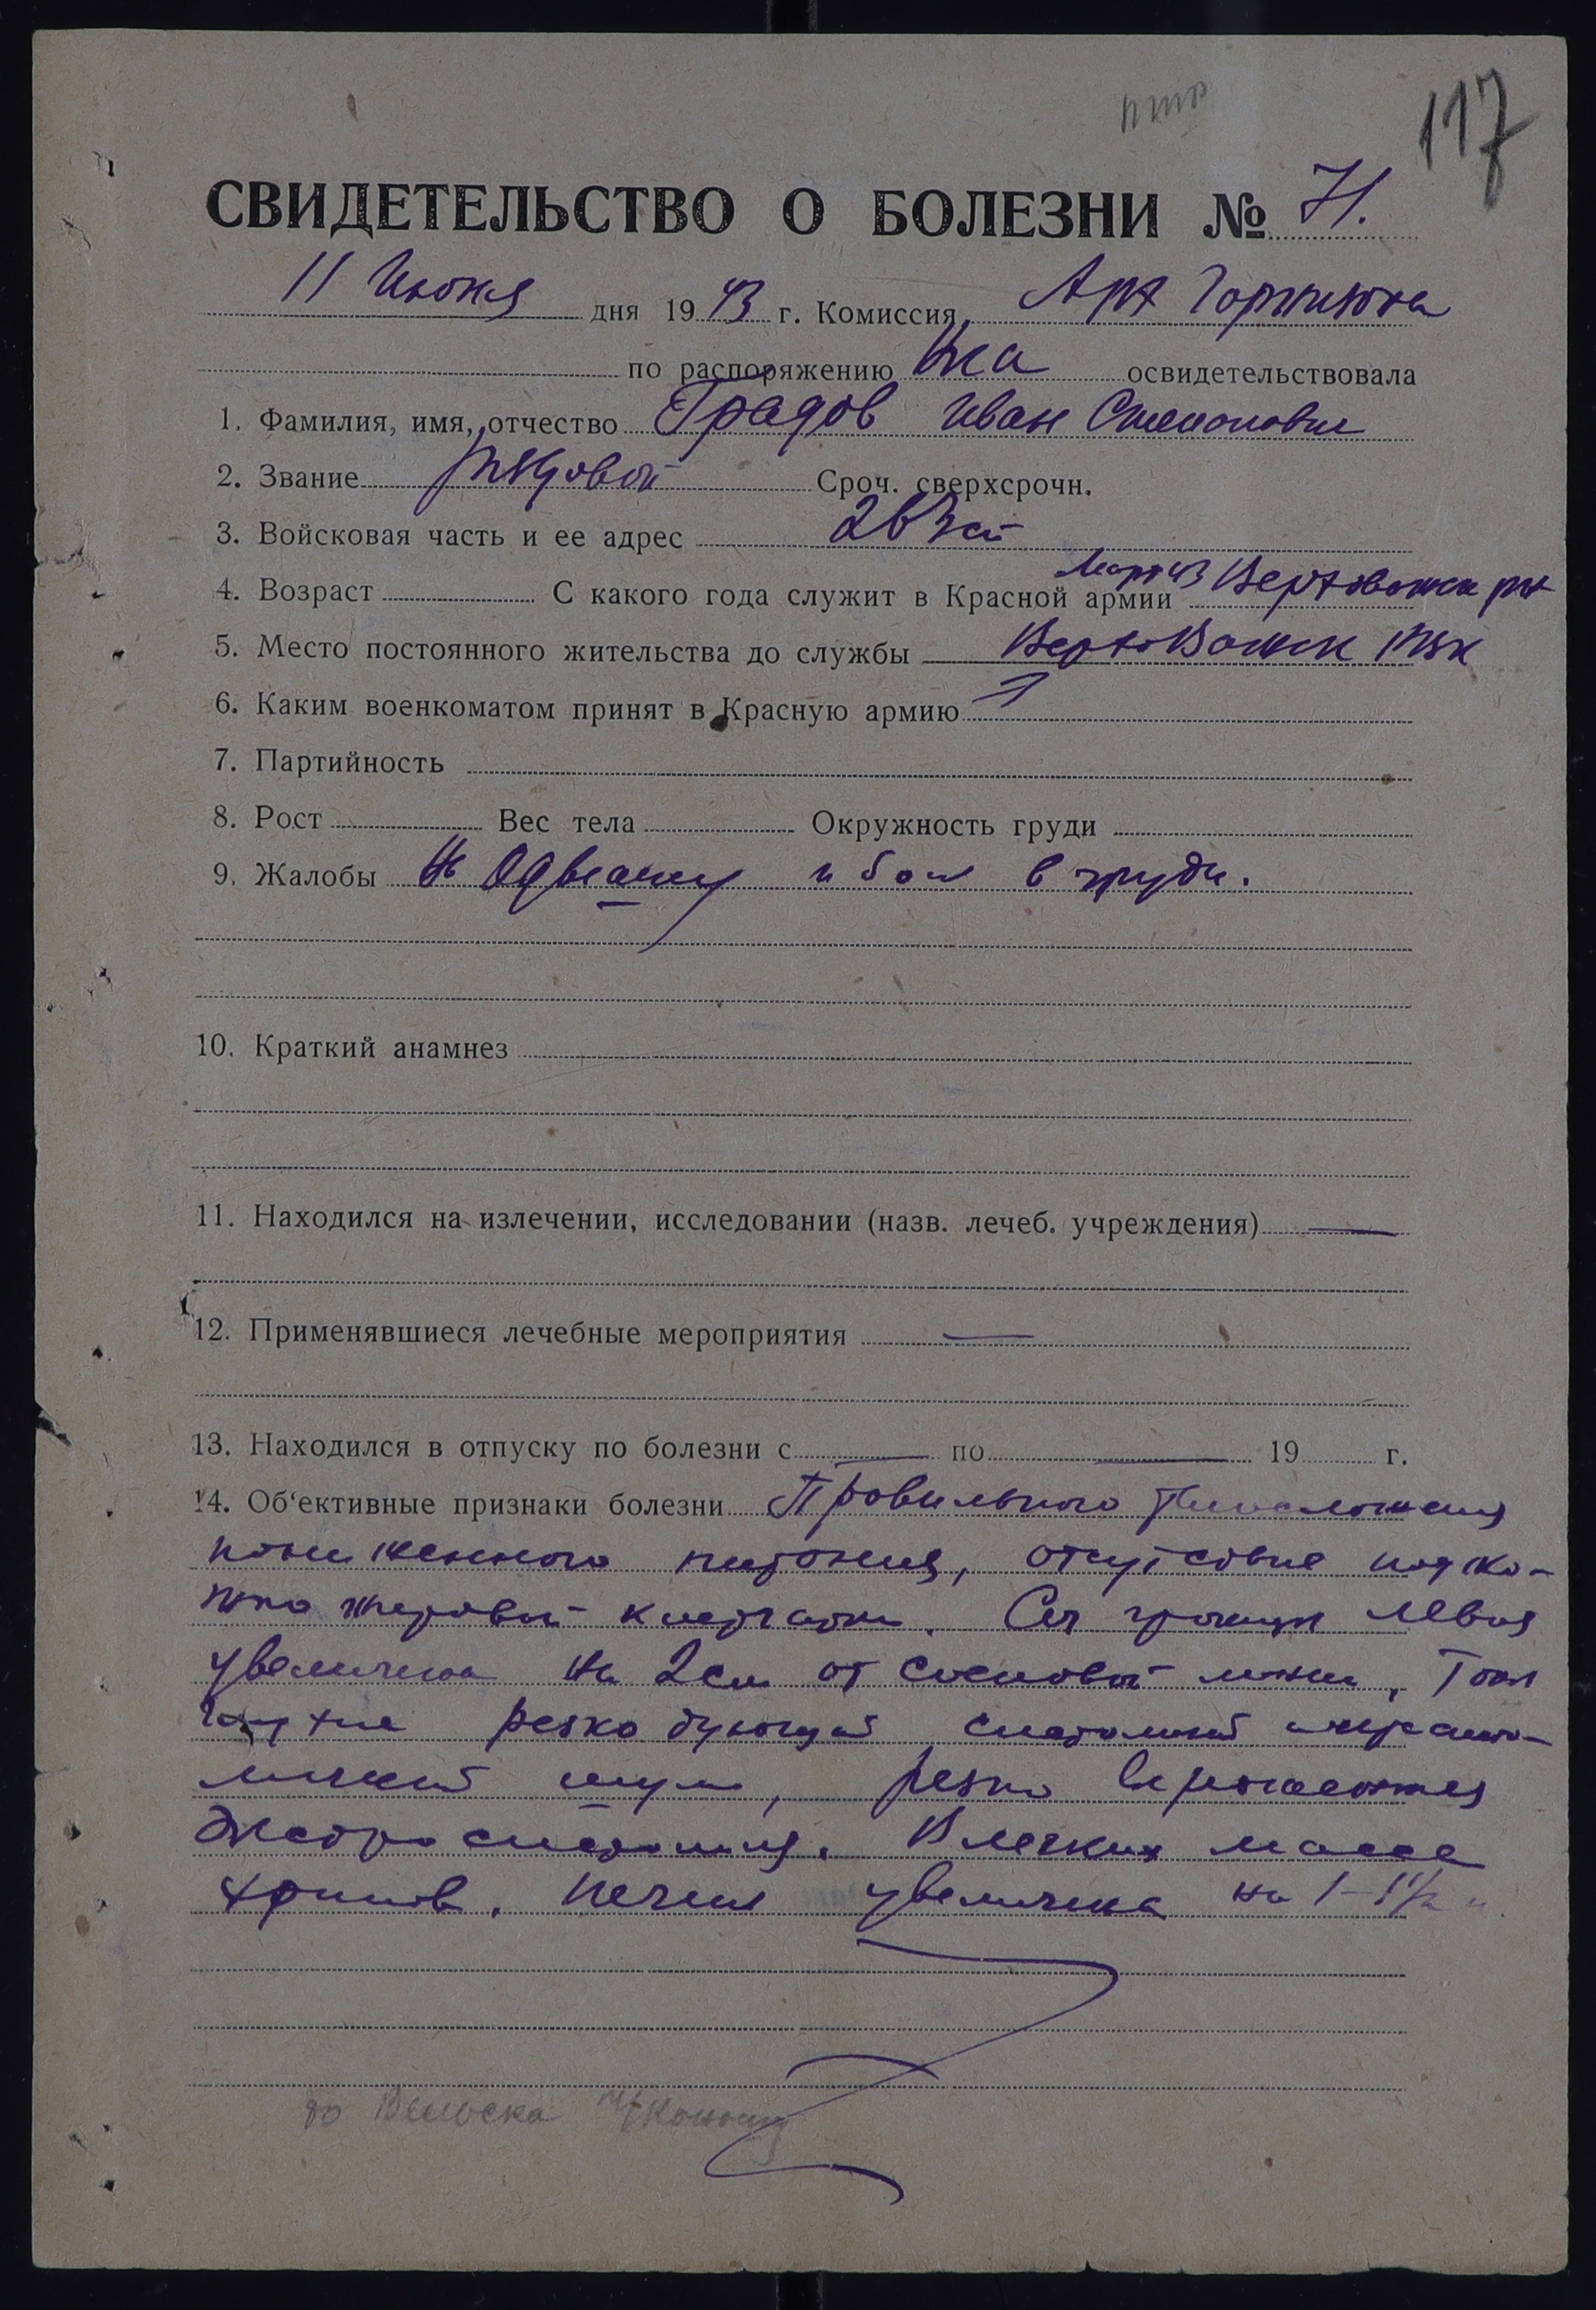 117
СВИДЕТЕЛЬСТВО О БОЛЕЗНИ № 71.
11 Июня дня 1943 г. Комиссия Арх
по распоряжению освидетельствовала
1. Фамилия, имя, отчество Градов Иван Степанович
2. Звание рядовой Сроч. сверхсрочн.
3. Войсковая часть и ее адрес
4. Возраст С какого года служит в Красной армии Март 43
5. Место постоянного жительства до службы
6. Каким военкоматом принят в Красную армию
7. Партийность
8. Рост Вес тела Окружность груди
9. Жалобы На Одышку и боли в груди.
10. Краткий анамнез
11. Находился на излечении, исследовании (назв. лечеб. учреждения) —
12. Применявшиеся лечебные мероприятия —
13. Находился в отпуску по болезни с — по — 19 г.
14. Об'ективные признаки болезни Правильного телосложения
пониженного питания, отсутствие подко-
жно жировой клетчатки. левая
увеличена на 2 см от сосковой линии, Тоны
глухие резко дующий систолический
шум, резко выраженная
В легких масса
хрипов. Печень увеличена на 1-1½
до Вельска